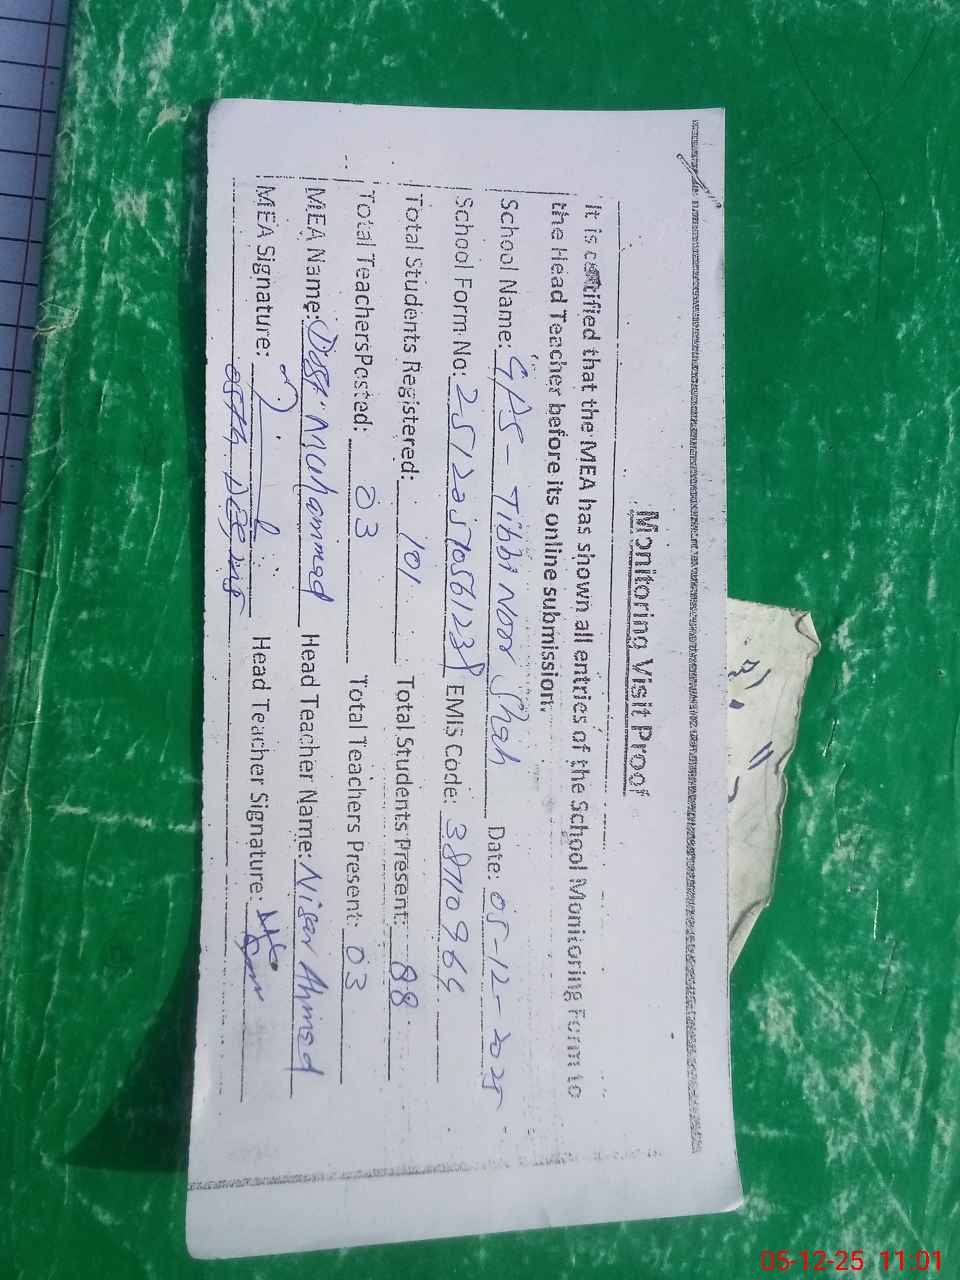 Monitoring Visit Proof
It is certified that the MEA has shown all entries of the School Monitoring Form to
the Head Teacher before its online submission.
School Name: GPS - Tibbi Noor Shah Date: 05-12-2025
School Form No: EMIS Code:
Total Students Registered: 101 Total Students Present: 88
Total Teachers Posted: 03 Total Teachers Present: 03
MEA Name: Dost Muhammad Head Teacher Name: Nisar Ahmed
MEA Signature: Head Teacher Signature:
05th Dec 2025
05-12-25 11:01